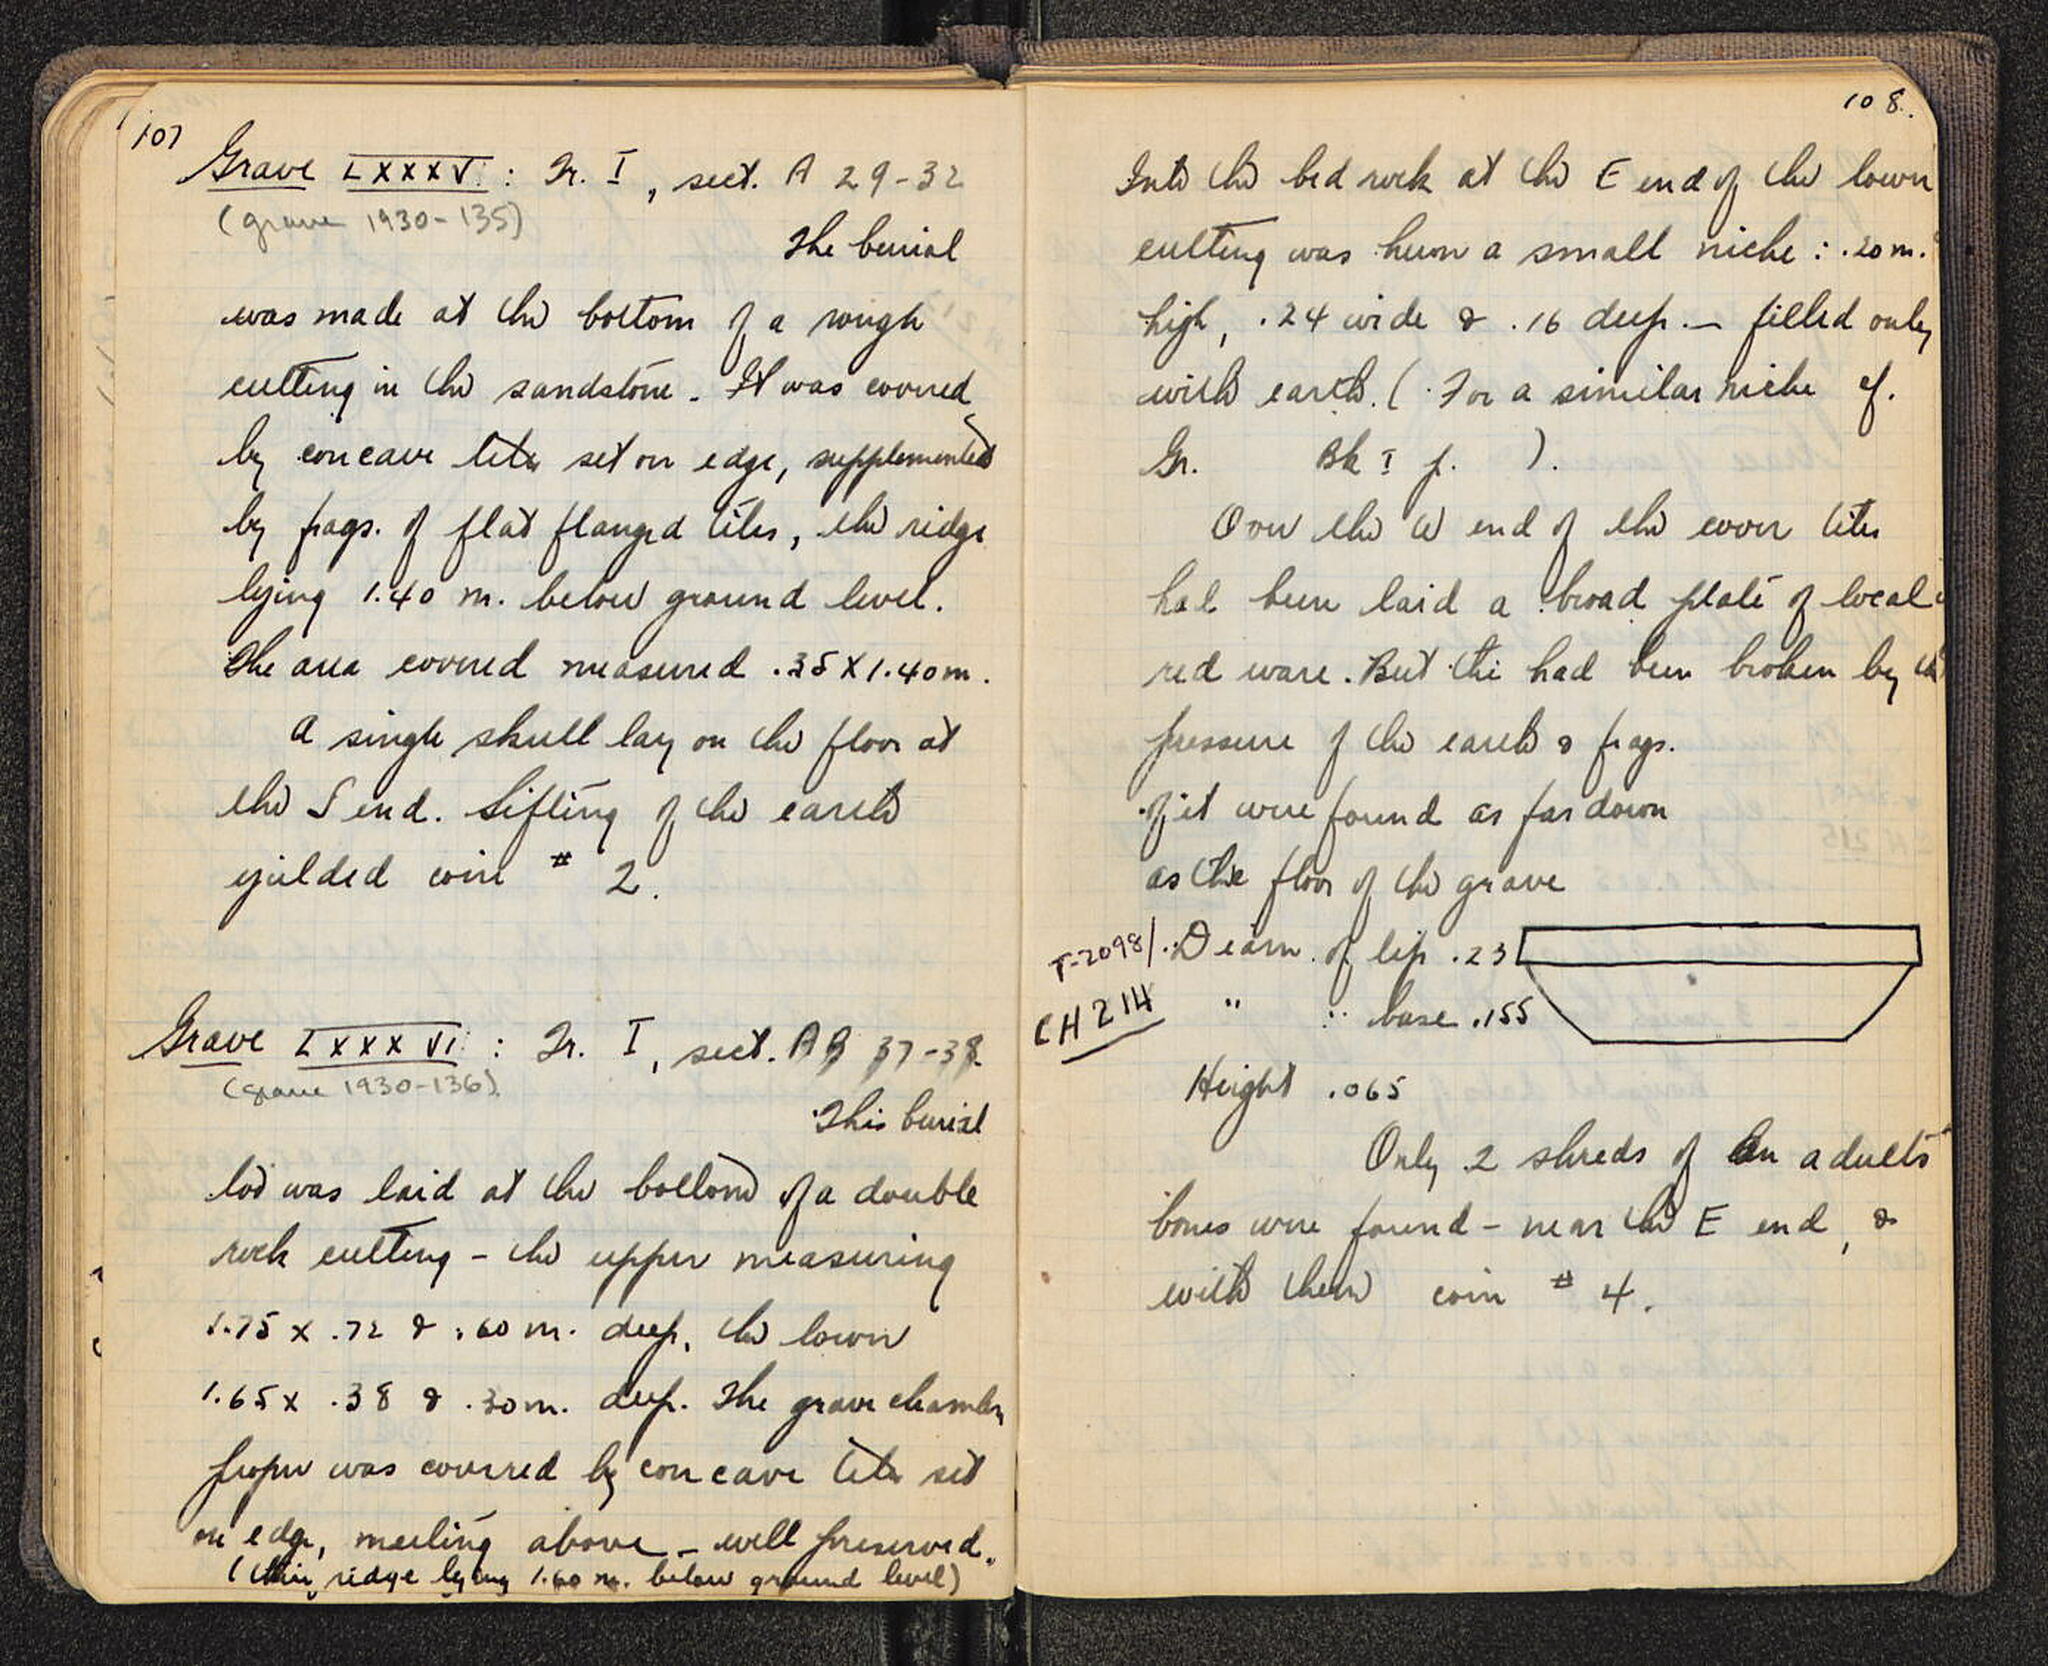 107
Grave LXXXV : Tr. I, sect. A 29-32
(grave 1930-135)
The burial
was made at the bottom of a rough
cutting in the sandstone. It was covered
by concave tiles set on edge, supplemented
by frags. of flat flanged tiles, the ridge
lying 1.40 m. below ground level.
The area covered measured .35 X 1.40 m.
A single skull lay on the floor at
the S end. Sifting of the earth
yielded coin # 2.
Grave LXXXVI : Tr. I, sect. AB 37-38
(grave 1930-136)
This burial
too was laid at the bottom of a double
rock cutting - the upper measuring
1.75 x .72 & .60 m. deep, the lower
1.65 x .38 & .30 m. deep. The grave chamber
proper was covered by concave tiles set
on edge, meeting above - well preserved.
(their ridge lying 1.60 m. below ground level)
108.
Into the bed rock at the E end of the lower
cutting was hewn a small niche : .20 m.
high, .24 wide & .16 deep. — filled only
with earth. (For a similar niche cf.
Gr. Bk I p. ).
Over the W end of the cover tiles
had been laid a broad plate of local
red ware. But this had been broken by the
pressure of the earth & frags.
of it were found as far down
as the floor of the grave
T-2098 / Diam. of lip .23
CH 214 " " base .155
Height .065
Only 2 shreds of an adult's
bones were found - near the E end, &
with them coin # 4.